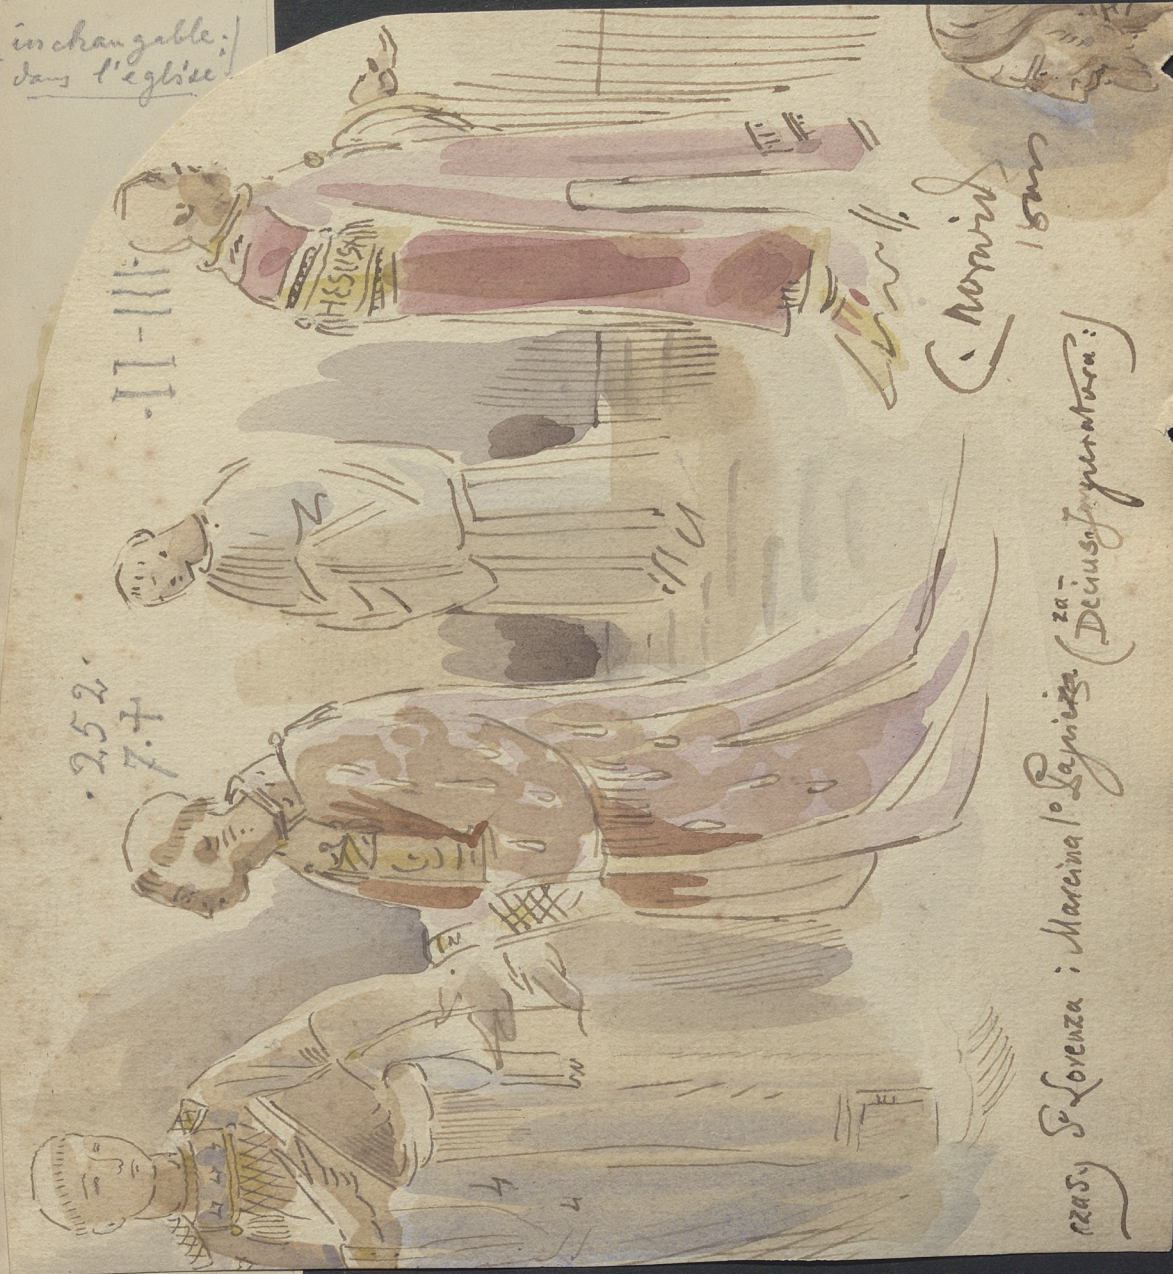 inschangable:/
dans l'église
.II-III.
.252.
7.+
HESUS
N
czasy Sº Lorenza i Marcina 1º Papieża (za-
Decius Imperatora:)